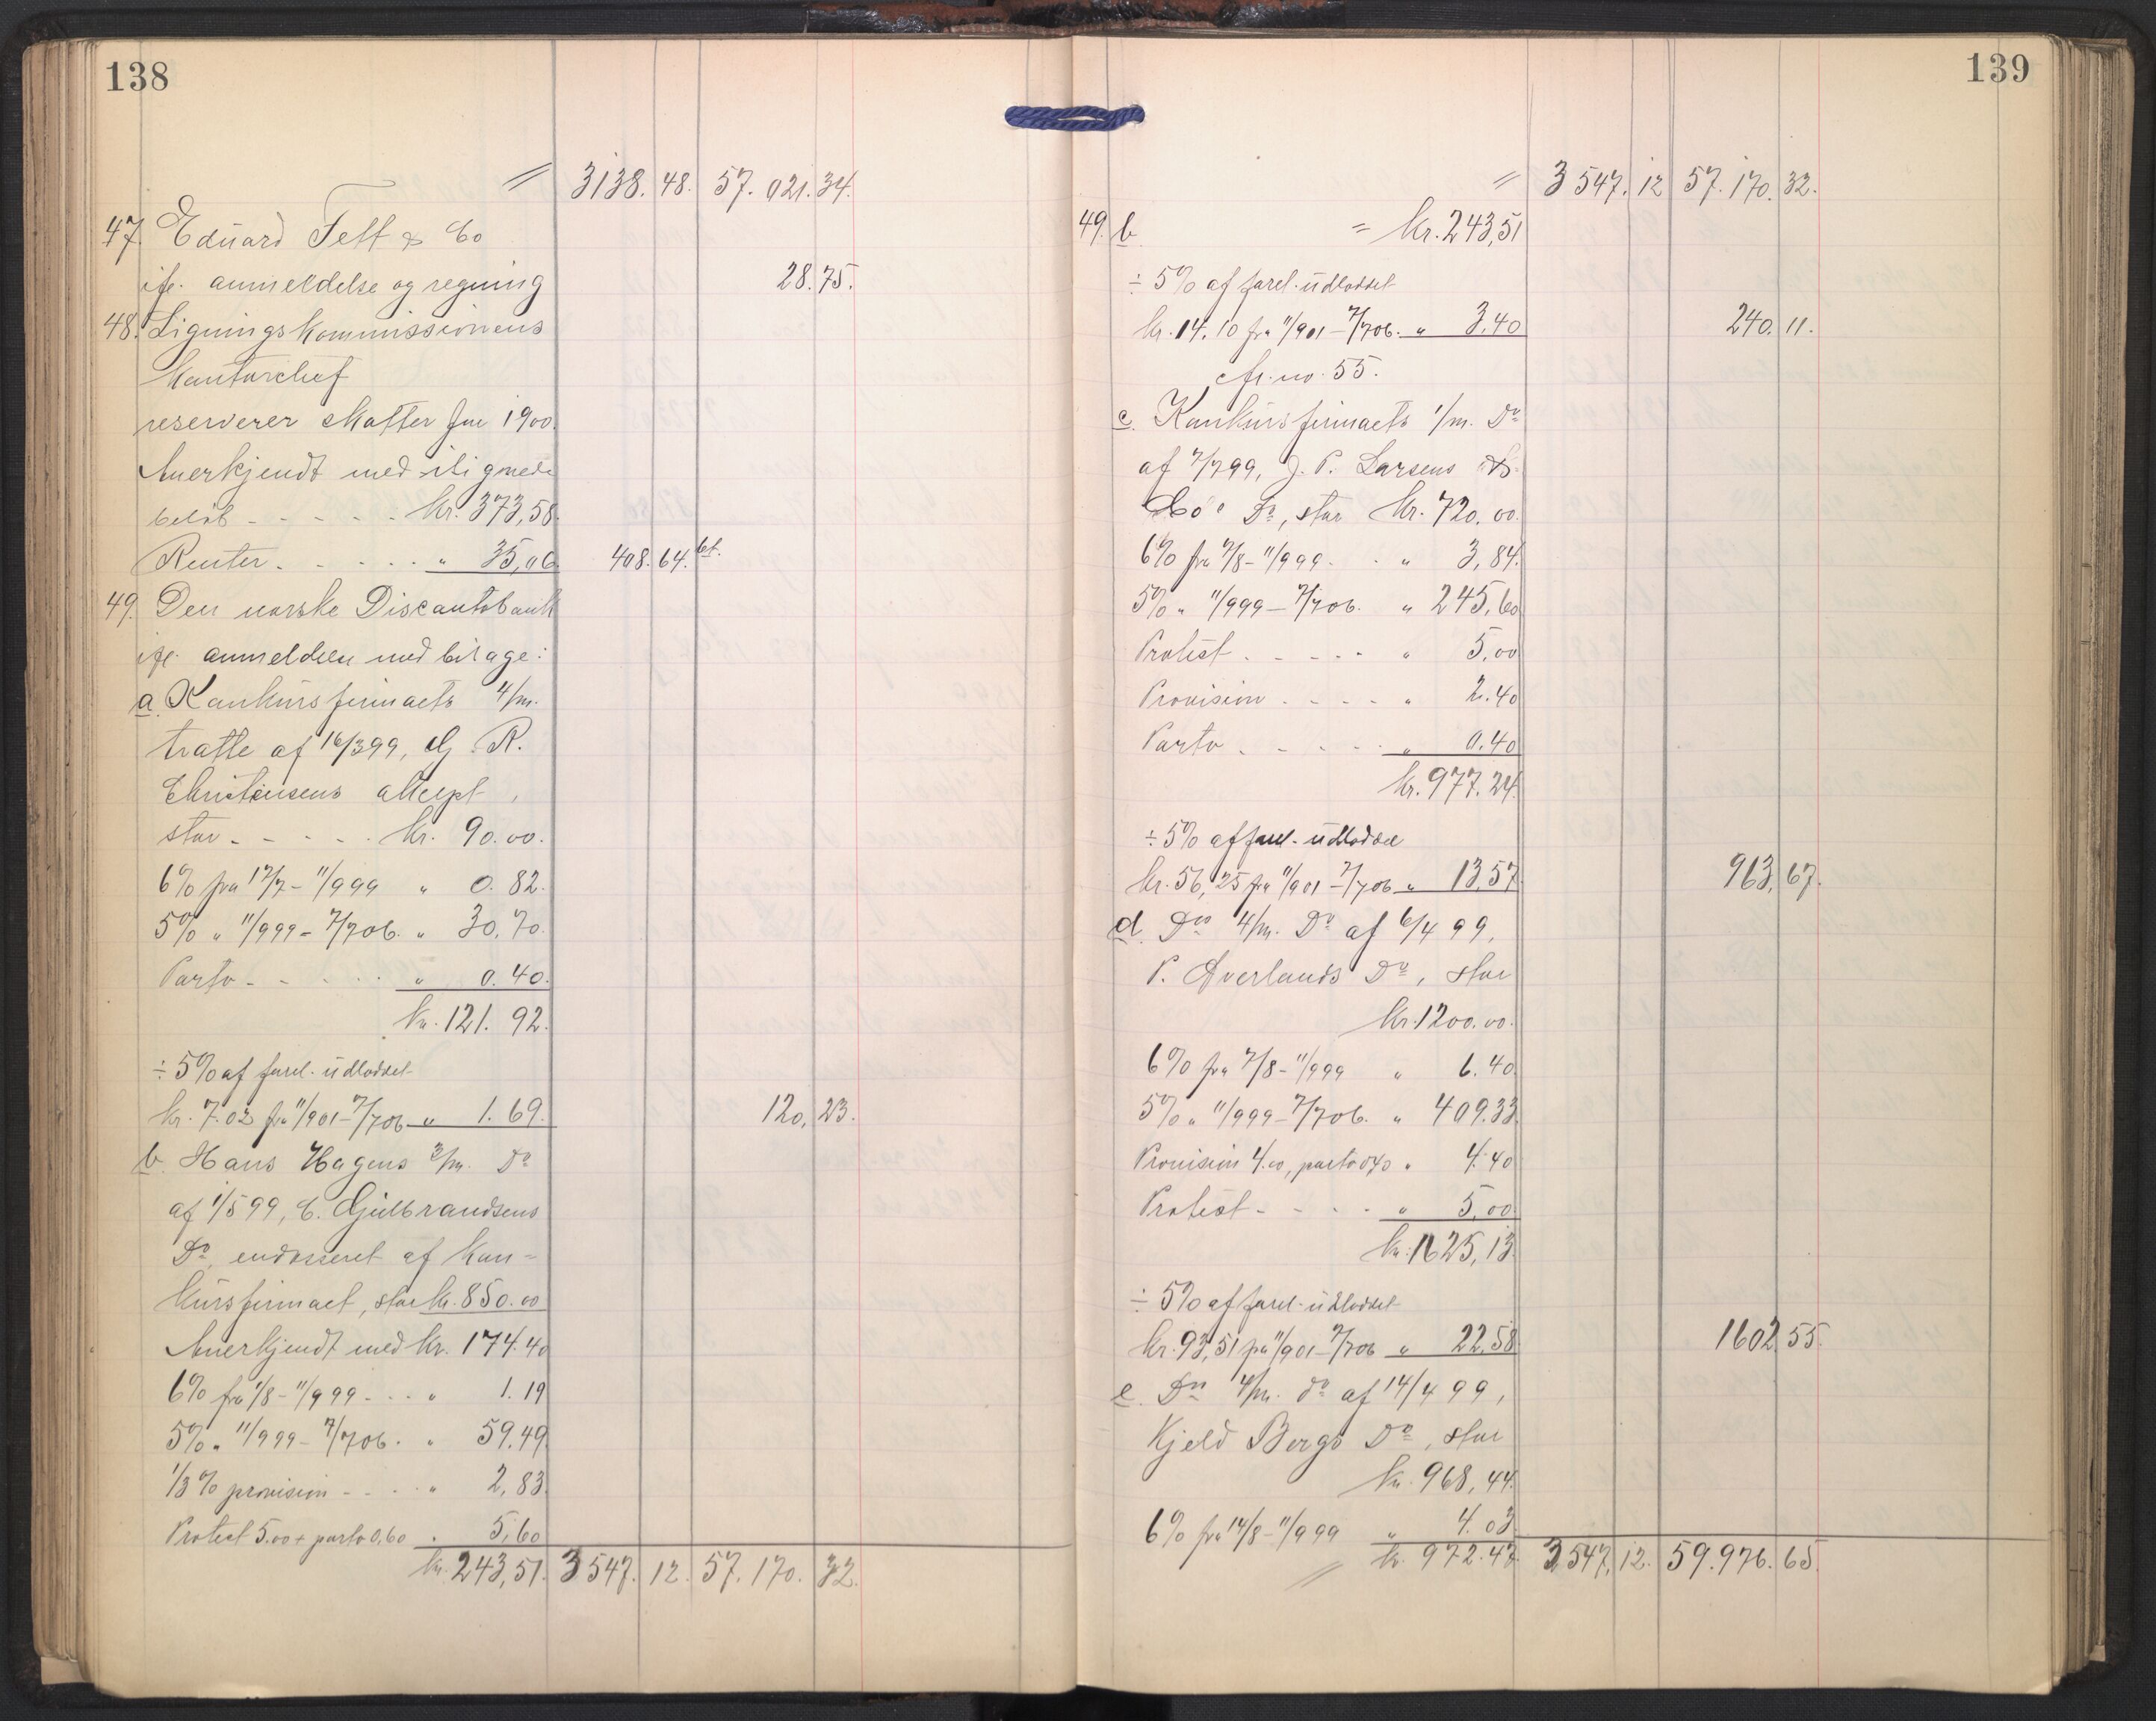 138
= 3138. 48. 57. 021. 34.
47. Eduard Fett & Co
ifl. anmeldelse og regning 28. 75.
48. Ligningskommissionens
Kontorchef
reserverer skatter for 1900.
Anerkjendt med ilignede
beløb - - - - - kr. 373,58.
Renter - - - - - " 35,06 408. 64. bt.
49. Den norske Discontobank
ifl. anmeldelse med bilage:
a. Konkursfirmaets 4/m.
tratte af 16/3 99, G. R.
Christensens accept,
stor - - - - - kr. 90.00.
6% fra 17/7 - 11/9 99 " 0. 82.
5% " 11/9 99 - 7/7 06. " 30. 70.
Porto - - - - - " 0. 40.
kr. 121. 92.
÷ 5% af forel. udloddet
kr. 7.02 fra 11/9 01 - 7/7 06 " 1. 69. 120. 23.
b. Hans Hagens 3/m. Do
af 1/5 99, C. Gulbrandsens
Do, endosseret af Kon=
kursfirmaet, stor kr. 850.00
Anerkjendt med kr. 174. 40
6% fra 1/8 - 11/9 99 - - - " 1. 19
5% " 11/9 99 - 7/7 06. " 59. 49
1/3% provision - - - - " 2,83
Protest 5.00 + porto 0,60 " 5,60
kr. 243,51. 3547. 12. 57. 170. 32.
139
= 3547. 12 57. 170. 32.
49. b = kr. 243,51
÷ 5% af forel. udloddet
kr. 14.10 fra 11/9 01 - 7/7 06. " 3,40 240. 11.
cfr. no. 55.
c. Konkursfirmaets 1/m. Do
af 7/7 99, J. P. Larsens &
Co's Do, stor kr. 720.00.
6% fra 7/8 - 11/9 99 - - " 3,84.
5% " 11/9 99 - 7/7 06. " 245,60
Protest - - - - - " 5,00
Provision - - - - " 2.40
Porto - - - - - " 0.40
kr. 977.24.
÷ 5% af forel. udloddet
kr. 56,25 fra 11/9 01 - 7/7 06 " 13,57. 963. 67.
d. Dos 4/m. Do af 6/4 99,
P. Overlands Do, stor
kr. 1200.00.
6% fra 7/8 - 11/9 99 " 6.40
5% " 11/9 99 - 7/7 06. " 409.33
Provision 4.00, porto 0.40 " 4.40
Protest - - - - " 5,00
kr. 1625,13.
÷ 5% af forel. udloddet
kr. 93,51 fra 11/9 01 - 7/7 06 " 22.58 1602 55.
e. Dos 4/m. do af 14/4 99,
Kjeld Bergs Do, stor
kr. 968,44.
6% fra 14/8 - 11/9 99 " 4.03
= kr. 972.47 3547. 12. 59.976. 65.